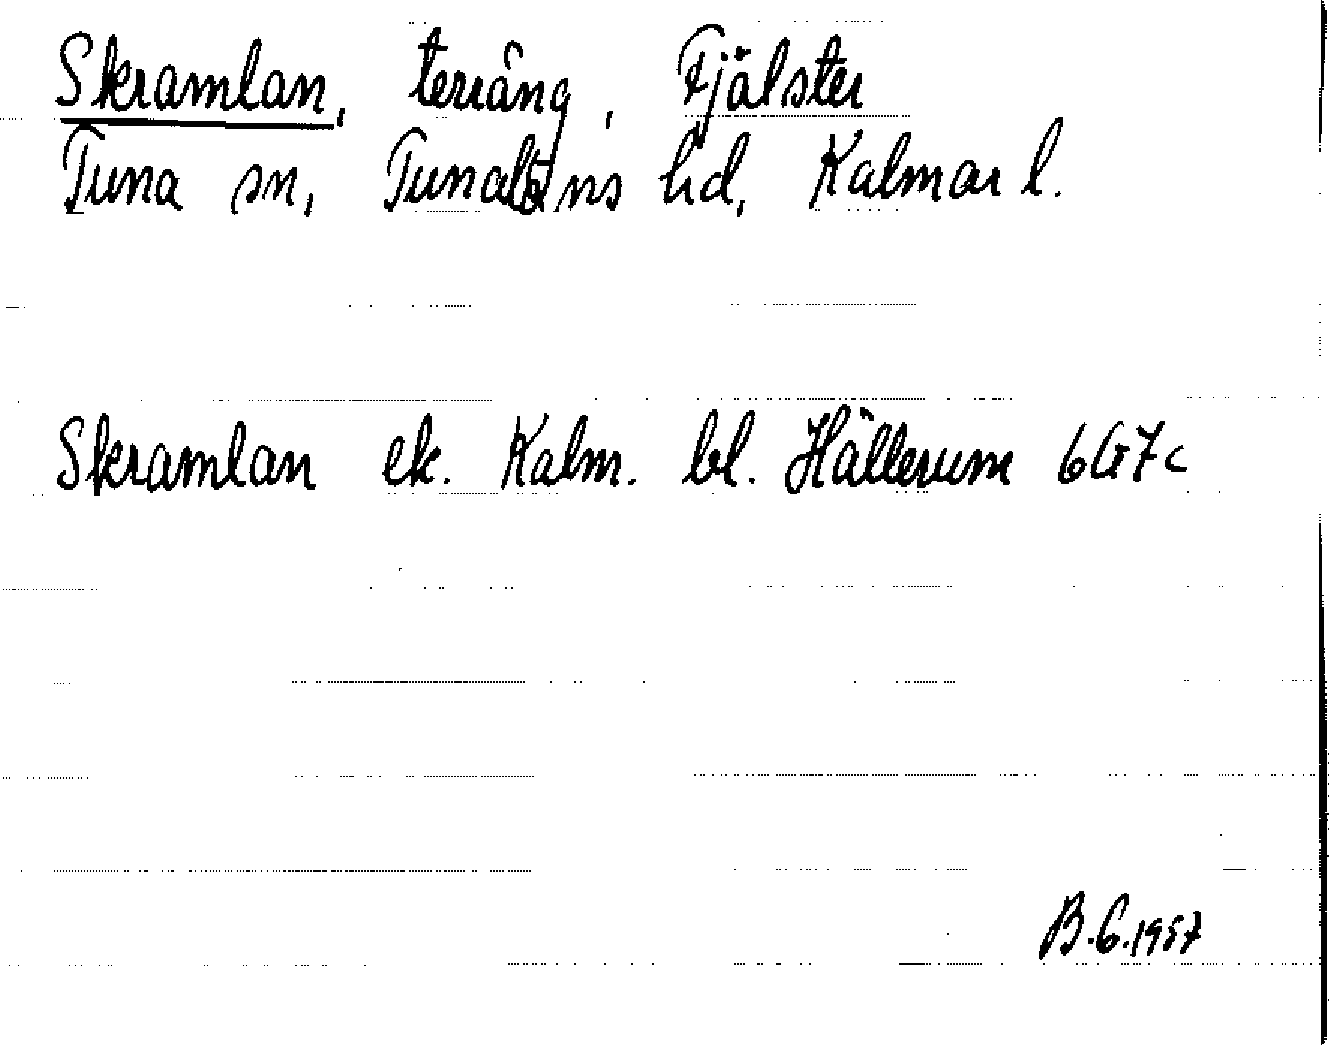 Skramlan, terräng, Fjälster
Tuna sn, Tunaläns hd, Kalmar l.
Skramlan ek. Kalm. bl. Hällerum 6G7c
B.G.1957